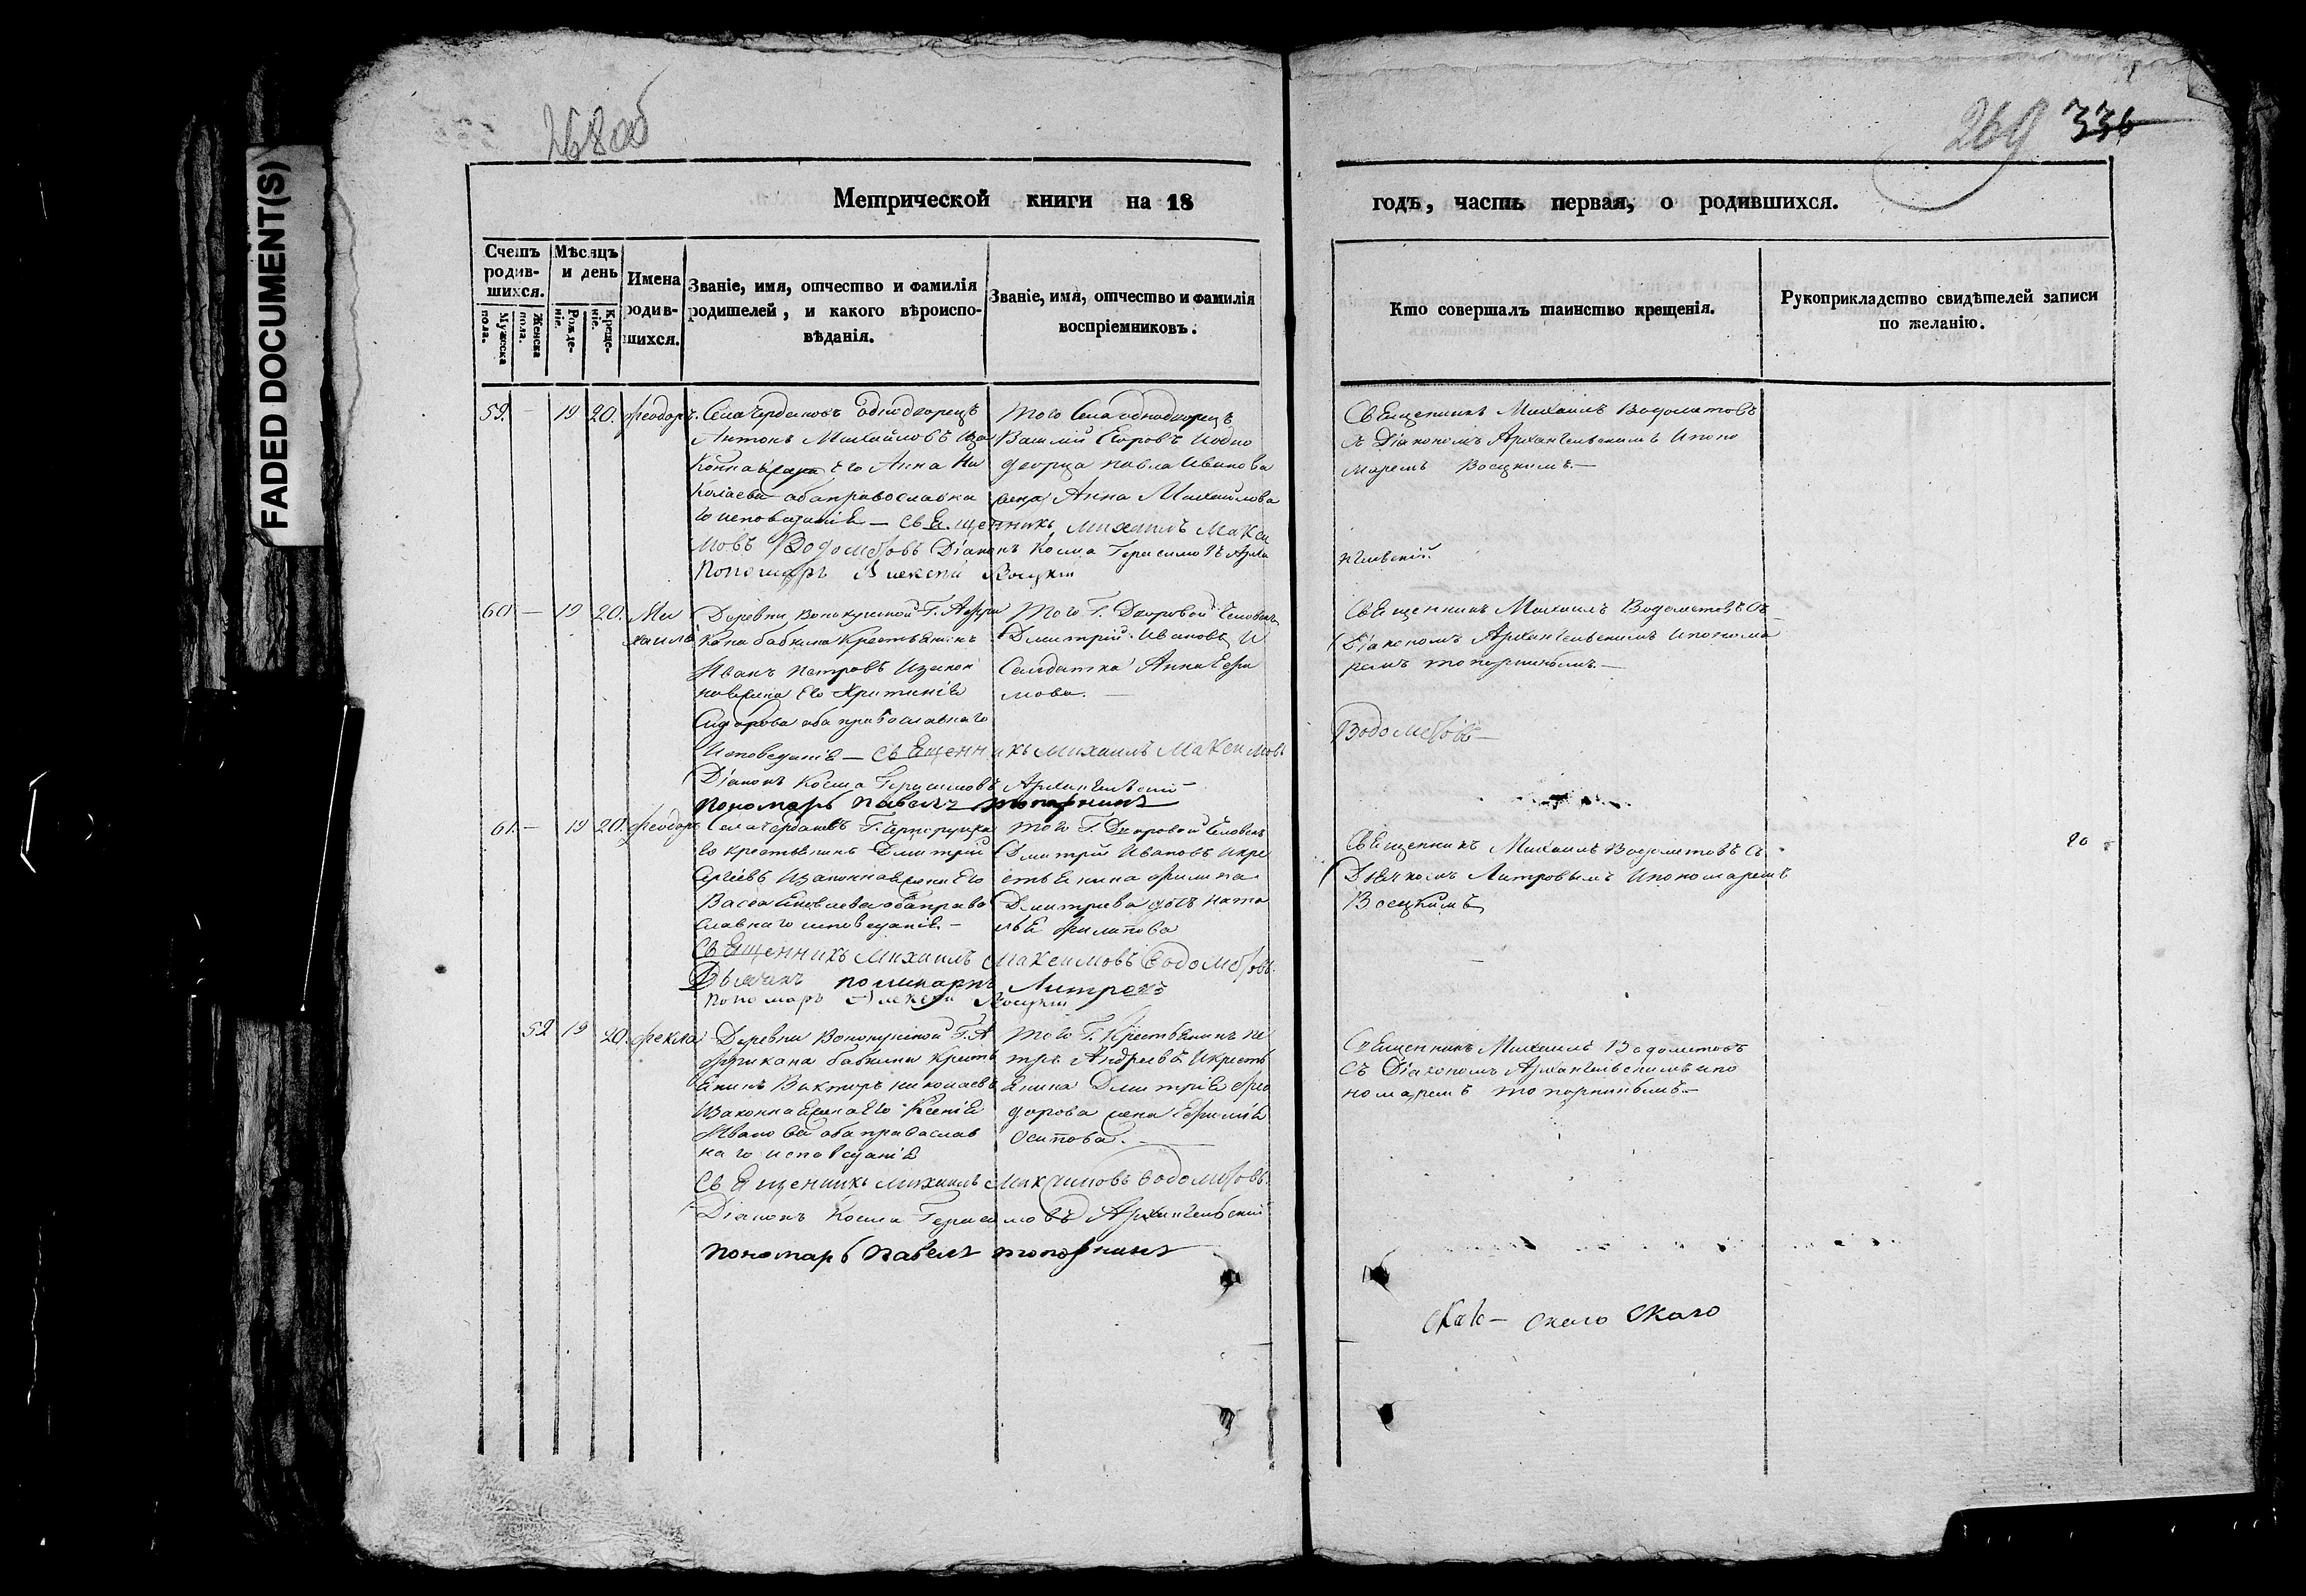 FADED DOCUMENT(S)
268об
269 336
Метрической книги на 18
годъ, часть первая, о родившихся.
Счетъ родив-шихся.
Мужеска пола.
Женска пола.
Мѣсяцъ и день
Рожде-ніе.
Креще-ніе.
Имена родив-шихся.
Званіе, имя, отчество и фамилія
родителей, и какого вѣроиспо-
вѣданія.
Званіе, имя, отчество и фамилія
воспріемниковъ.
Кто совершалъ таинство крещенія.
Рукоприкладство свидѣтелей записи
по желанію.
59. – 19 20. Феодоръ.
Села Чердаковъ однодворецъ
Антонъ Михайловъ иза
конна жена его Анна Ни
колаева оба православна
го исповеданіе – Священникъ Михаилъ Макси
мовъ Водометовъ Діаконъ Косма Герасимовъ Арха
Пономарь Алексей Восцкій
того села однодворецъ
Василій Егоровъ и одно
дворца Павла Иванова
жена Анна Михайлова
Священникъ Михаилъ Водометовъ
съ Діакономъ Архангельскимъ и поно
маремъ Восцкимъ. –
нгельскій.
60. – 19 20. Ми
хаилъ
Деревни Г. Афри
кана бабкина крестьянинъ
Иванъ Петровъ и закон
ная жена его
Сидорова оба православнаго
исповеданіе – Священникъ Михаилъ Максимовъ
Діаконъ Косма Герасимовъ Архангельскій
Пономарь Павелъ Топорнинъ
того Г. Дворовой человекъ
Дмитрій Ивановъ и
салдатка Анна Ефи
мова. –
Священникъ Михаилъ Водометовъ съ
Діакономъ Архангельскимъ и понома
ремъ Топорнинымъ. –
Водометовъ –
61. – 19 20. Феодоръ
Села Чердаковъ Г.
го крестьянинъ Дмитрій
Сергеевъ и законная жена его
Васса Яковлева оба право
славнаго исповеданіе. –
Священникъ Михаилъ Максимовъ Водометовъ.
Дьячокъ Поликарпъ Литровъ
Пономарь Алексей Восцкій
того Г. Дворовой человекъ
Дмитрій Ивановъ и кре
стьянина Филипа
Дмитріева дочь Ната
лья Филипова
Священникъ Михаилъ Водометовъ съ
Дьячкомъ Литровымъ и пономаремъ
Восцкимъ
20
52 19 20. Фекла
Деревни Г. А
фрикана бабкина кресть
янинъ Викторъ Николаевъ
и законна жена его Ксенія
Иванова оба православ
наго исповеданіе
Священникъ Михаилъ Максимовъ Водометовъ.
Діаконъ Косма Герасимовъ Архангельскій
Пономарь Павелъ Топорнинъ
того Г. Крестьянинъ Пе
тръ Андреевъ и кресть
янина Дмитріе Фео
дорова жена Ефиміе
Осипова. –
Священникъ Михаилъ Водометовъ
съ Діакономъ Архангельскимъ и по
номаремъ Топорнинымъ –
скаго